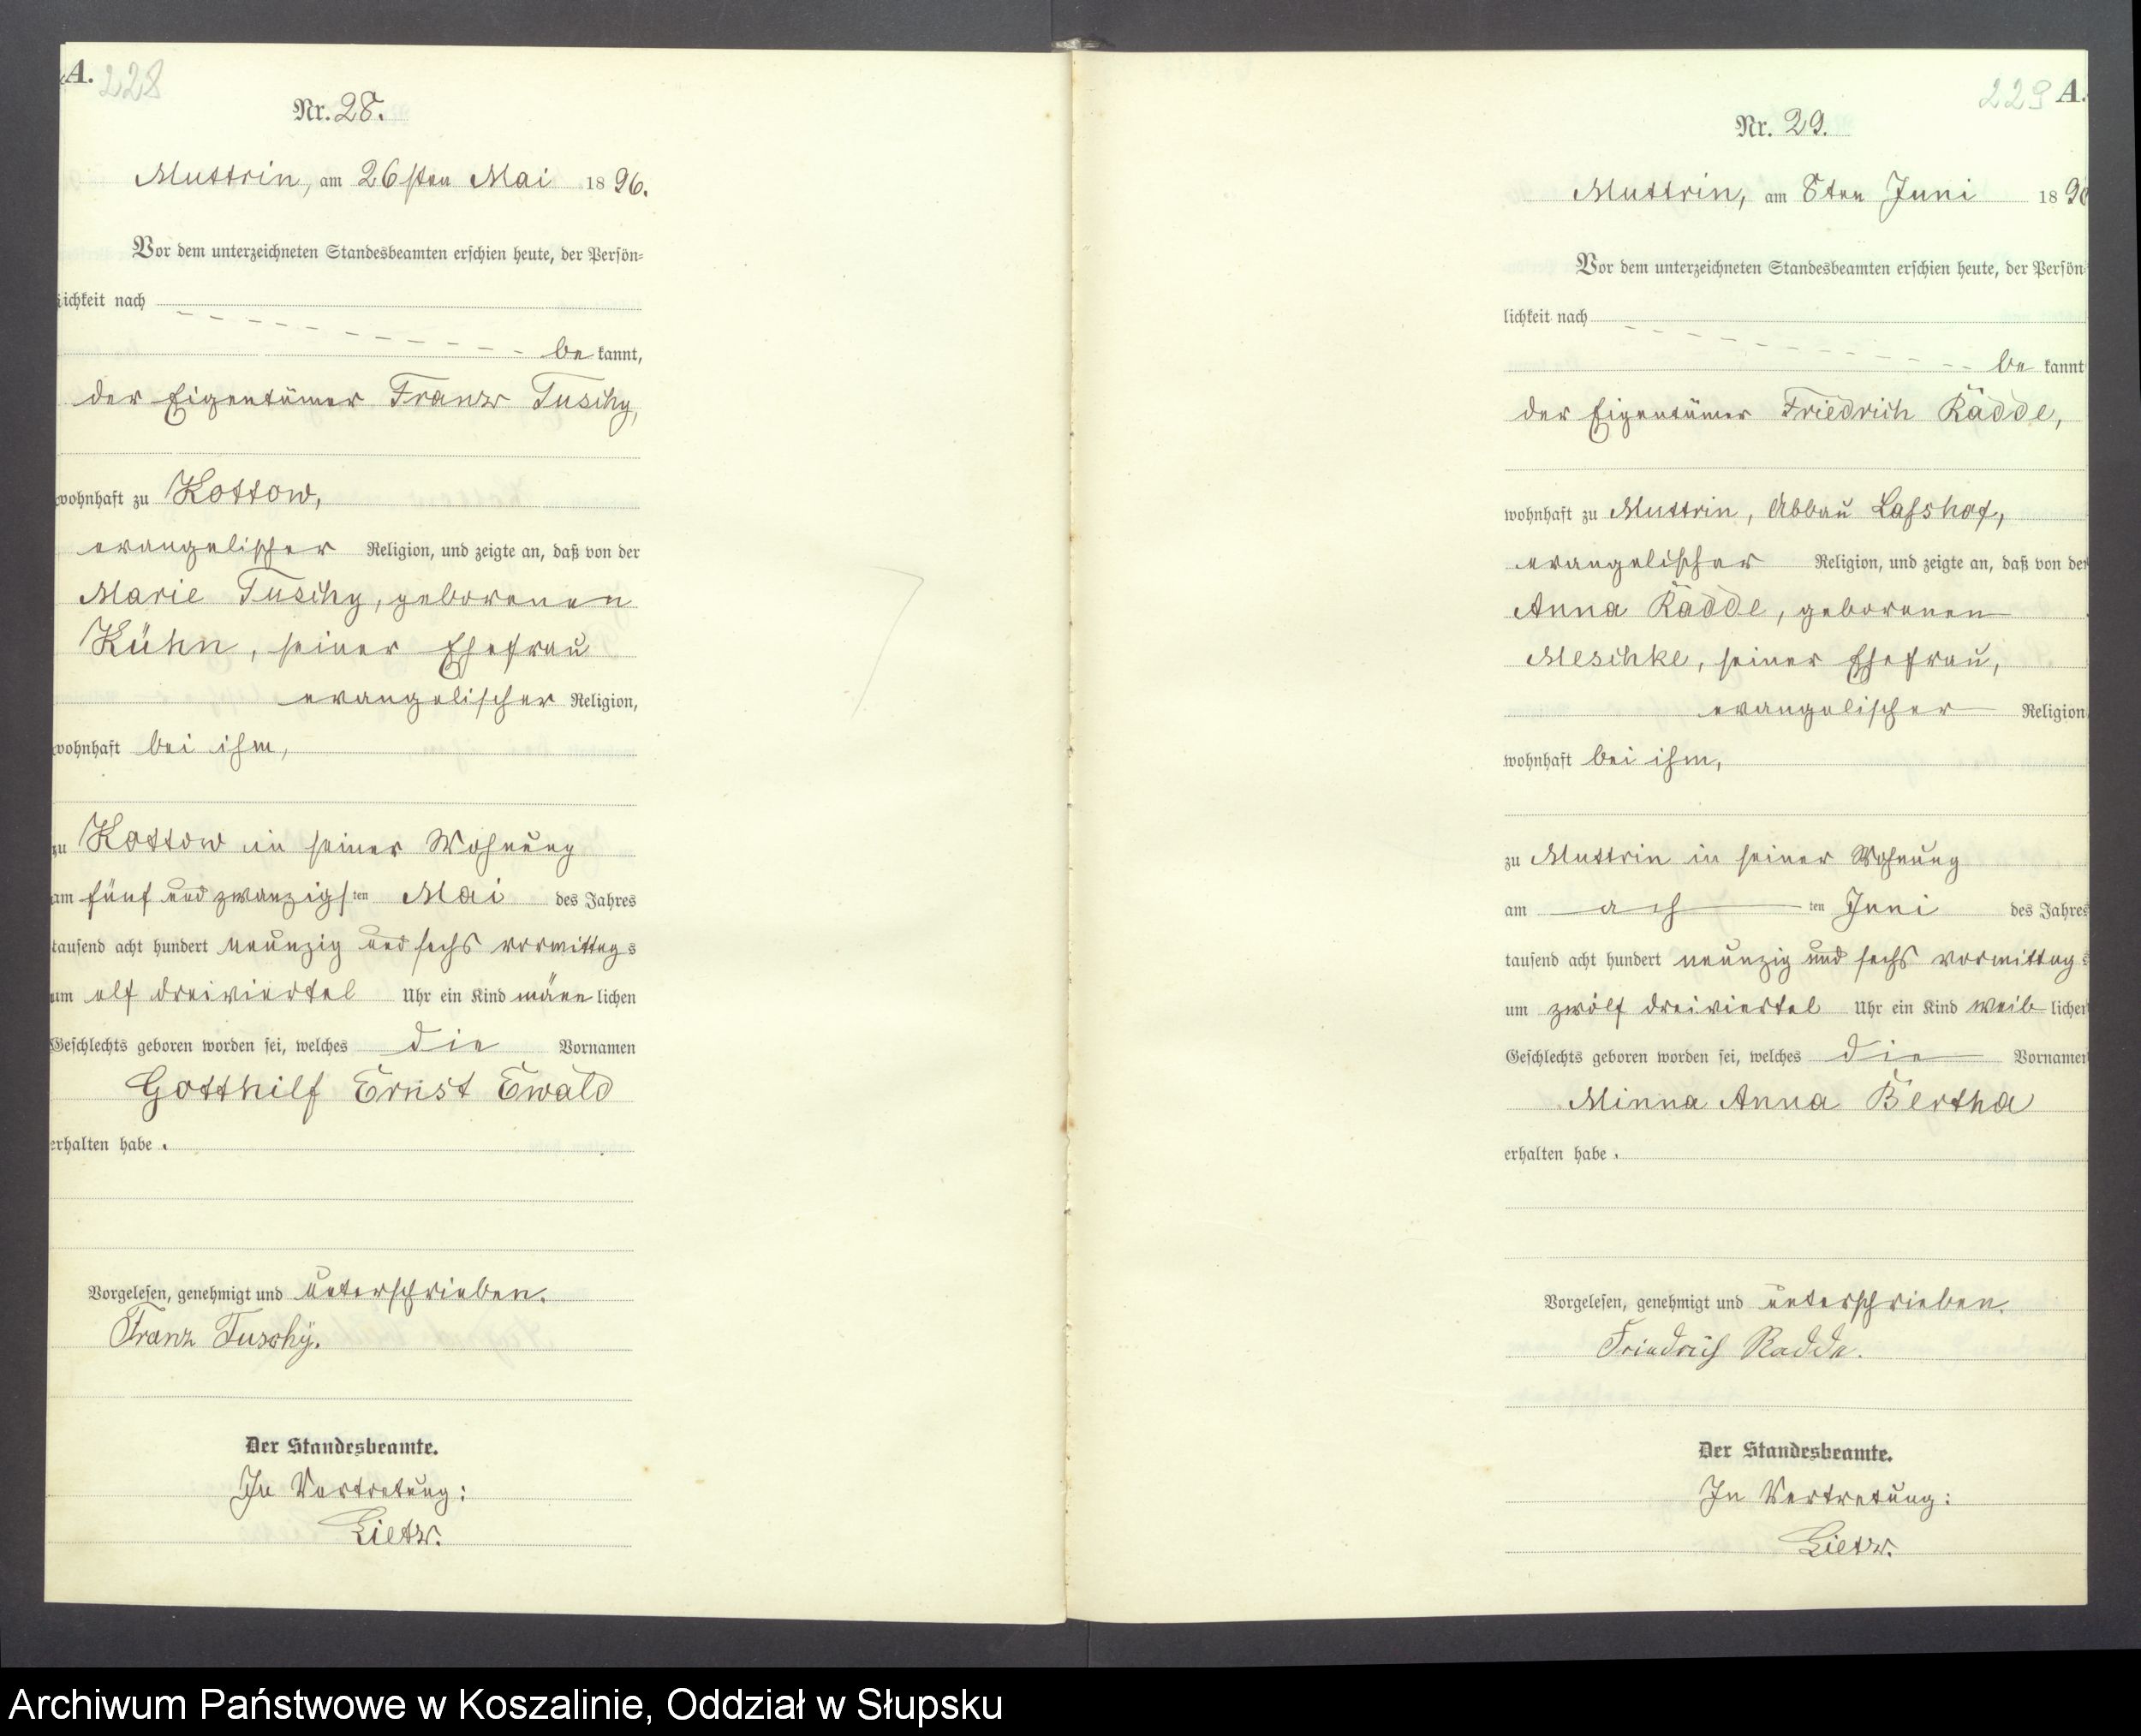 A. 228
Nr. 28.
Muttrin, am 26sten Mai 1896.
Vor dem unterzeichneten Standesbeamten erschien heute, der Persön-
lichkeit nach
be kannt,
der Eigentümer Franz Tuschy,
wohnhaft zu Kottow,
evangelischer Religion, und zeigte an, daß von der
Marie Tuschy, geborenen
Kühn, seiner Ehefrau
evangelischer Religion,
wohnhaft bei ihm,
zu Kottow in seiner Wohnung
am fünf und zwanzigsten Mai des Jahres
tausend acht hundert neunzig und sechs vormittags
um elf dreiviertel Uhr ein Kind männlichen
Geschlechts geboren worden sei, welches die Vornamen
Gotthilf Ernst Ewald
erhalten habe.
Vorgelesen, genehmigt und unterschrieben.
Franz Tuschÿ.
Der Standesbeamte.
In Vertretung:
Lietz.
229 A.
Nr. 29.
Muttrin, am 8ten Juni 189
Vor dem unterzeichneten Standesbeamten erschien heute, der Persön
lichkeit nach
be kannt
der Eigentümer Friedrich Radde,
wohnhaft zu Muttrin, Abbau
evangelischer Religion, und zeigte an, daß von der
Anna Radde, geborenen
Meschke, seiner Ehefrau,
evangelischer Religion
wohnhaft bei ihm,
zu Muttrin in seiner Wohnung
am ach ten Juni des Jahres
tausend acht hundert neunzig und sechs vormittags
um zwölf dreiviertel Uhr ein Kind weib lichen
Geschlechts geboren worden sei, welches die Vornamen
Minna Anna Bertha
erhalten habe.
Vorgelesen, genehmigt und unterschrieben.
Friedrich Radde.
Der Standesbeamte.
In Vertretung:
Lietz.
Archiwum Państwowe w Koszalinie, Oddział w Słupsku